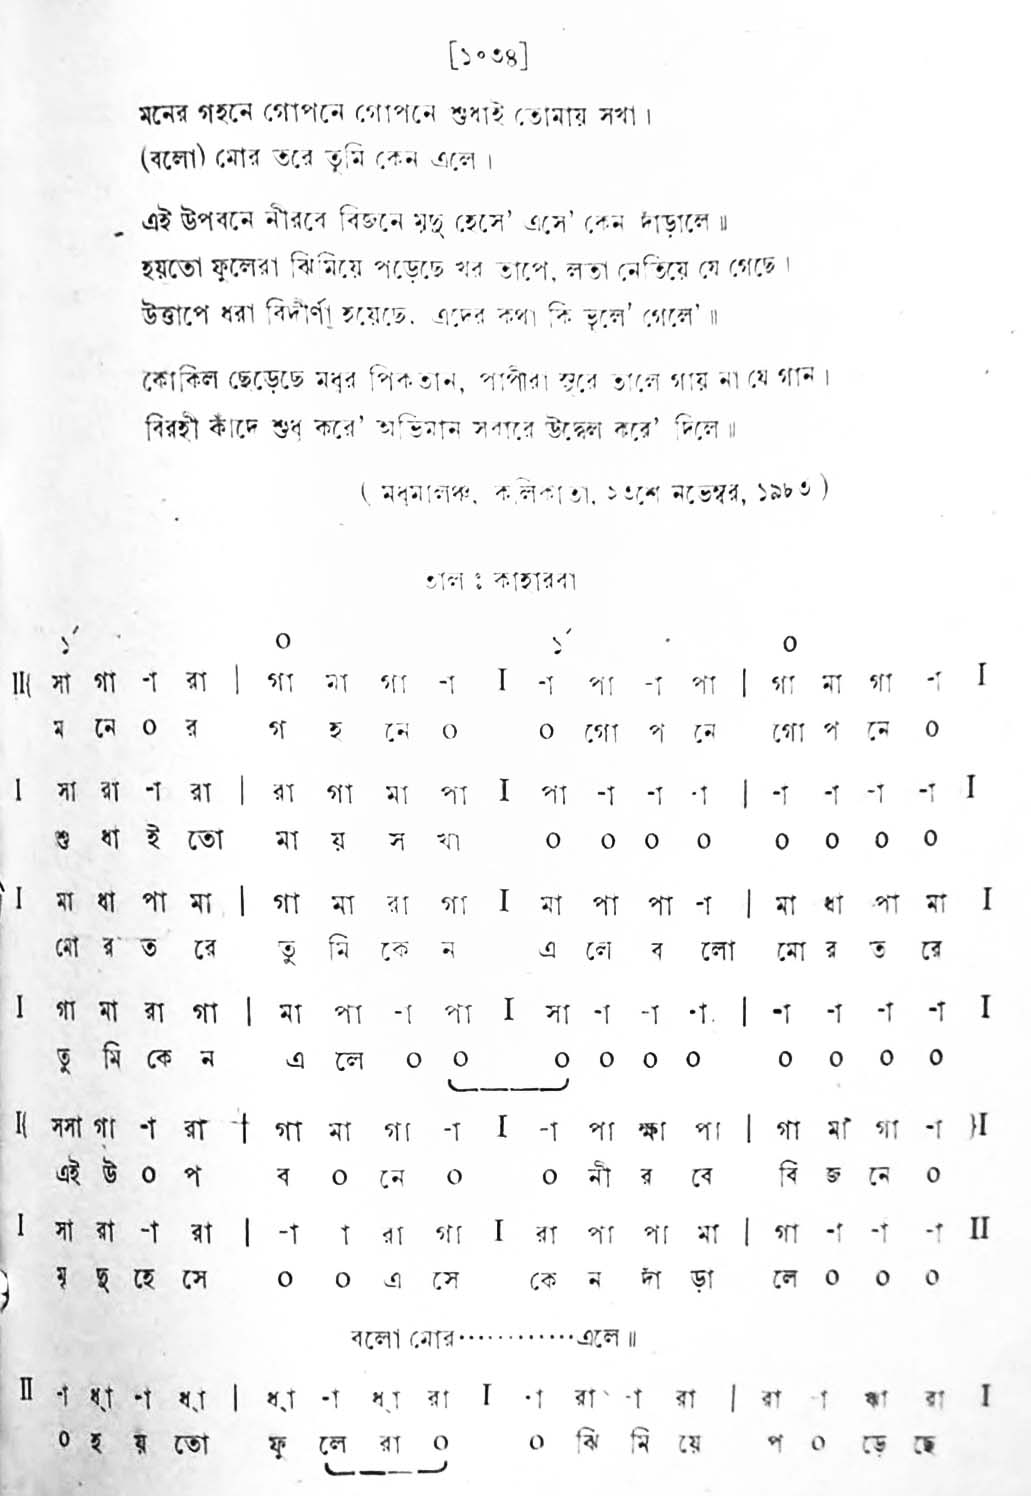 [১০৩৪]
মনের গহনে গোপনে গোপনে শুধাই তোমায় সখা।
(বলো) মোর তরে তুমি কেন এলে।
এই উপবনে নীরবে বিজনে মৃদু হেসে’ এসে’ কেন দাঁড়ালে॥
হয়তো ফুলেরা ঝিমিয়ে পড়েছে খর তাপে, লতা নেতিয়ে যে গেছে।
উত্তাপে ধরা বিদীর্ণা হয়েছে, এদের কথা কি ভুলে’ গেলে’॥
কোকিল ছেড়েছে মধুর পিকতান, পাপীরা সুরে তালে গায় না যে গান।
বিরহী কাঁদে শুধু করে’ অভিমান সবারে উদ্বেল করে’ দিলে॥
( মধুমালঞ্চ, কলিকাতা, ২৩শে নভেম্বর, ১৯৮৩ )
তাল : কাহারবা
১´ ০ ১´ ০
II{ সা গা -া রা | গা মা গা -া I -া পা -া পা | গা মা গা -া I
ম নে ০ র গ হ নে ০ ০ গো প নে গো প নে ০
I সা রা -া রা | রা গা মা পা I পা -া -া -া | -া -া -া -া I
শু ধা ই তো মা য় স খা ০ ০ ০ ০ ০ ০ ০ ০
I মা ধা পা মা | গা মা রা গা I মা পা পা -া | মা ধা পা মা I
মো র ত রে তু মি কে ন এ লে ব লো মো র ত রে
I গা মা রা গা | মা পা -া পা I সা -া -া -া | -া -া -া -া I
তু মি কে ন এ লে ০ ০ ০ ০ ০ ০ ০ ০ ০ ০
I{ সসা গা -া রা | গা মা গা -া I -া পা ক্ষা পা | গা মা গা -া }I
এই উ ০ প ব ০ নে ০ ০ নী র বে বি জ নে ০
I সা রা -া রা | -া া রা গা I রা পা পা মা | গা -া -া -া II
মৃ দু হে সে ০ ০ এ সে কে ন দাঁ ড়া লে ০ ০ ০
বলো মোর············এলে॥
II -া ধ্া -া ধ্া | ধ্া -া ধ্া রা I -া রা -া রা | রা -া রা I
০ হ য় তো ফু লে রা ০ ০ ঝি মি য়ে প ০ ড়ে ছে